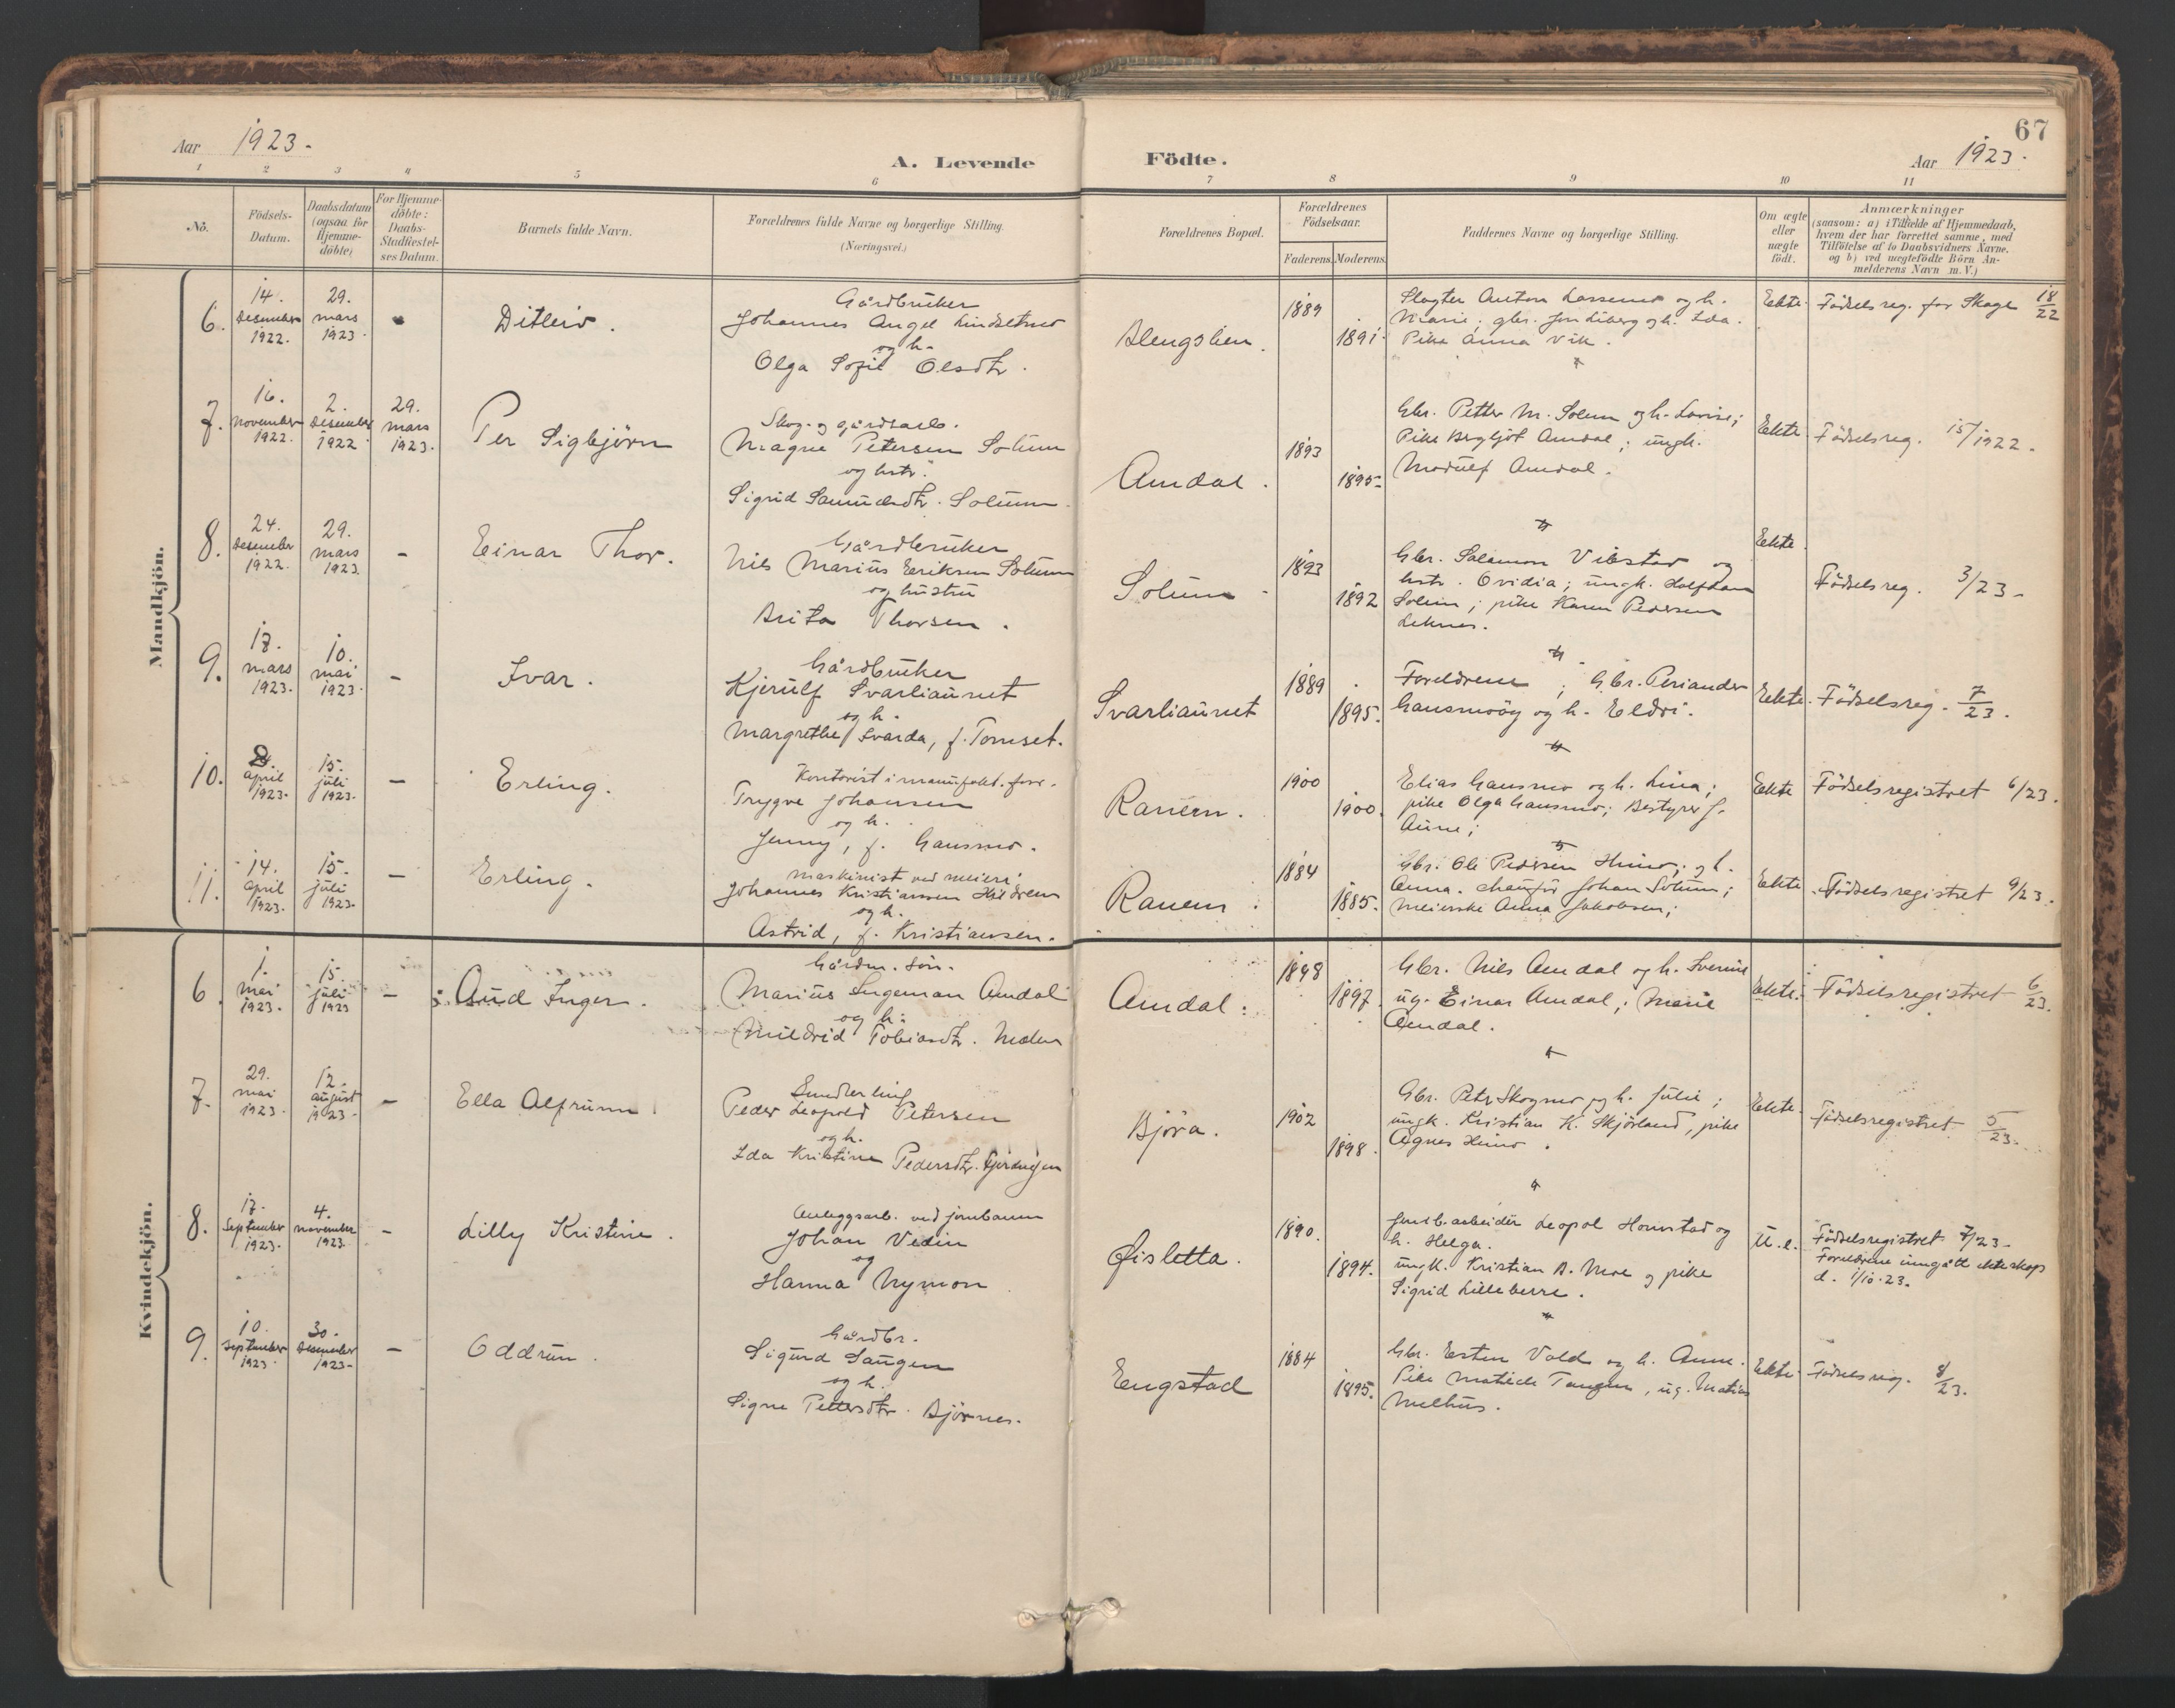 Aar 1923.
A. Levende Födte.
Aar 1923.
67
1 2 3 4 5 6 7 8 9 10 11
No.
Födsels-Datum.
Daabsdatum (ogsaa for Hjemme-döbte)
For Hjemme-döbte: Daabs-Stadfiestel-ses Datum.
Barnets fulde Navn.
Forældrenes fulde Navne og borgerlige Stilling.
(Næringsvei.)
Forældrenes Bopæl.
Forældrenes Födselsaar.
Faderens. Moderens.
Faddernes Navne og borgerlige Stilling.
Om ægte eller uægte födt.
Anmærkninger
(saasom: a) i Tilfælde af Hjemmedaab,
hvem der har forrettet samme, med
Tilföielse af to Daabsvidners Navne.
og b) ved uægtefödte Börn An-
melderens Navn m. V.)
Mandkjön.
6. 14. Desember 1922. 29. mars 1923. -
Ditleiv.
Gårdbruker
Johannes Angel Lindsetmo
og h.
Olga Sofie Olsdtr.
1889 1891.
Slagter Anton Lassemo og h.
Marie; gbr. Jon Liberg og h. Ida.
Pike Anna Vik.
Ekte. Födselsreg. for Skage 18/22
7. 16. november 1922. 2. Desember 1922. 29. mars 1923.
Per Sigbjörn
Skog- og gårdsarb.
Magne Petersen Solum
og hstr.
Sigrid Samuelsdtr. Solum.
Amdal.
1893 1895.
Gbr. Petter M. Solum og h. Lovise;
Pike Bergljot Amdal; ungk.
Modulf Amdal.
Ekte. Födselsreg. 15/1922.
8. 24. Desember 1922. 29. mars 1923. -
Einar Thor.
Gårdbruker
Nils Marius Eriksen Solum
og hustru
Brita Thorsen.
Solum
1893 1892
Gbr. Salamon Vibstad og
hstr. Ovidia; ungk. Halfdan
Solum; pike Karen Pedersen
Leknes.
Ekte. Födselsreg. 3/23-
9. 17. mars 1923. 10. mai 1923. -
Ivar.
Gårdbruker
Kjerulf Svarliaunet
og h.
Margrethe Svarda, f. Tomset.
Svarliaunet
1889 1895.
Foreldrene; Gbr. Periander
Gansmoöy og h. Eldri.
Ekte. Födselsreg. 7/23.
10. april 1923. 15. juli 1923. -
Erling.
Kontorist i manufakt. forr.
Trygve Johansen
og h.
Jenny, f. Gansmo.
Ranem.
1900 1900.
Elias Gansmo og h. Lina;
pike Olga Gansmo; Bestyrer J.
Aune;
Ekte Födselsregistret 6/23.
11. 14. april 1923. 15. juli 1923. -
Erling.
Maskinist ved meieri
Johannes Kristianssen Hildrem
og h.
Astrid, f. Kristiansen.
Ranem.
1884 1885.
Gbr. Ole Pedersen Himo; og h.
Anna. chauför Johan Solum;
Meierske Anna Jakobsen;
Ekte Födselsregistret 9/23.
Kvindekjön.
6. 1. mai 1923. 15. juli 1923 -
Aud Inger.
Gårdm. sön.
Marius Ingeman Amdal
og h.
Mildrid Tobiasdtr. Moen
Amdal.
1898 1897.
Gbr. Nils Amdal og h. Sverine
ug. Einar Amdal; Marie
Amdal.
Ekte. Födselsregistret 6/23.
7. 29. mai 1923. 12. august 1923. -
Ella Alfrunn
Smedlerling
Peder Leopold Petersen
og h.
Ida Kristine Pedersdtr.
Björa.
1902 1898.
Gbr. Peter Skogmo og h. Julie;
ungk. Kristian K. Skjörland, pike
Agnes Himo.
Ekte. Födselsregistret 5/23.
8. 17. September 1923. 4. november 1923. -
Lilly Kristine.
Anleggsarb. ved jernbanen
Johan Vedin
og
Hanna Nymon
Øisletta.
1890. 1894.
Jernb.arbeider Leopol Homstad og
h. Helga.
ungk. Kristian A. Moe og pike
Sigrid Lilleberre.
U. e. Födselsregistret 7/23-
Foreldrene inngått ekteskap
d. 1/10.23.
9. 10. September 1923 30. Desember 1923- -
Oddrun.
Gårdbr.
Sigurd Saugen
og h.
Signe Pettersdtr. Björnes.
Engstad
1884 1895.
Gbr. Esten Vold og h. Anne.
Pike Matilde Tangen, ug. Matias
Melhus.
Ekte. Födselsreg. 8/23.